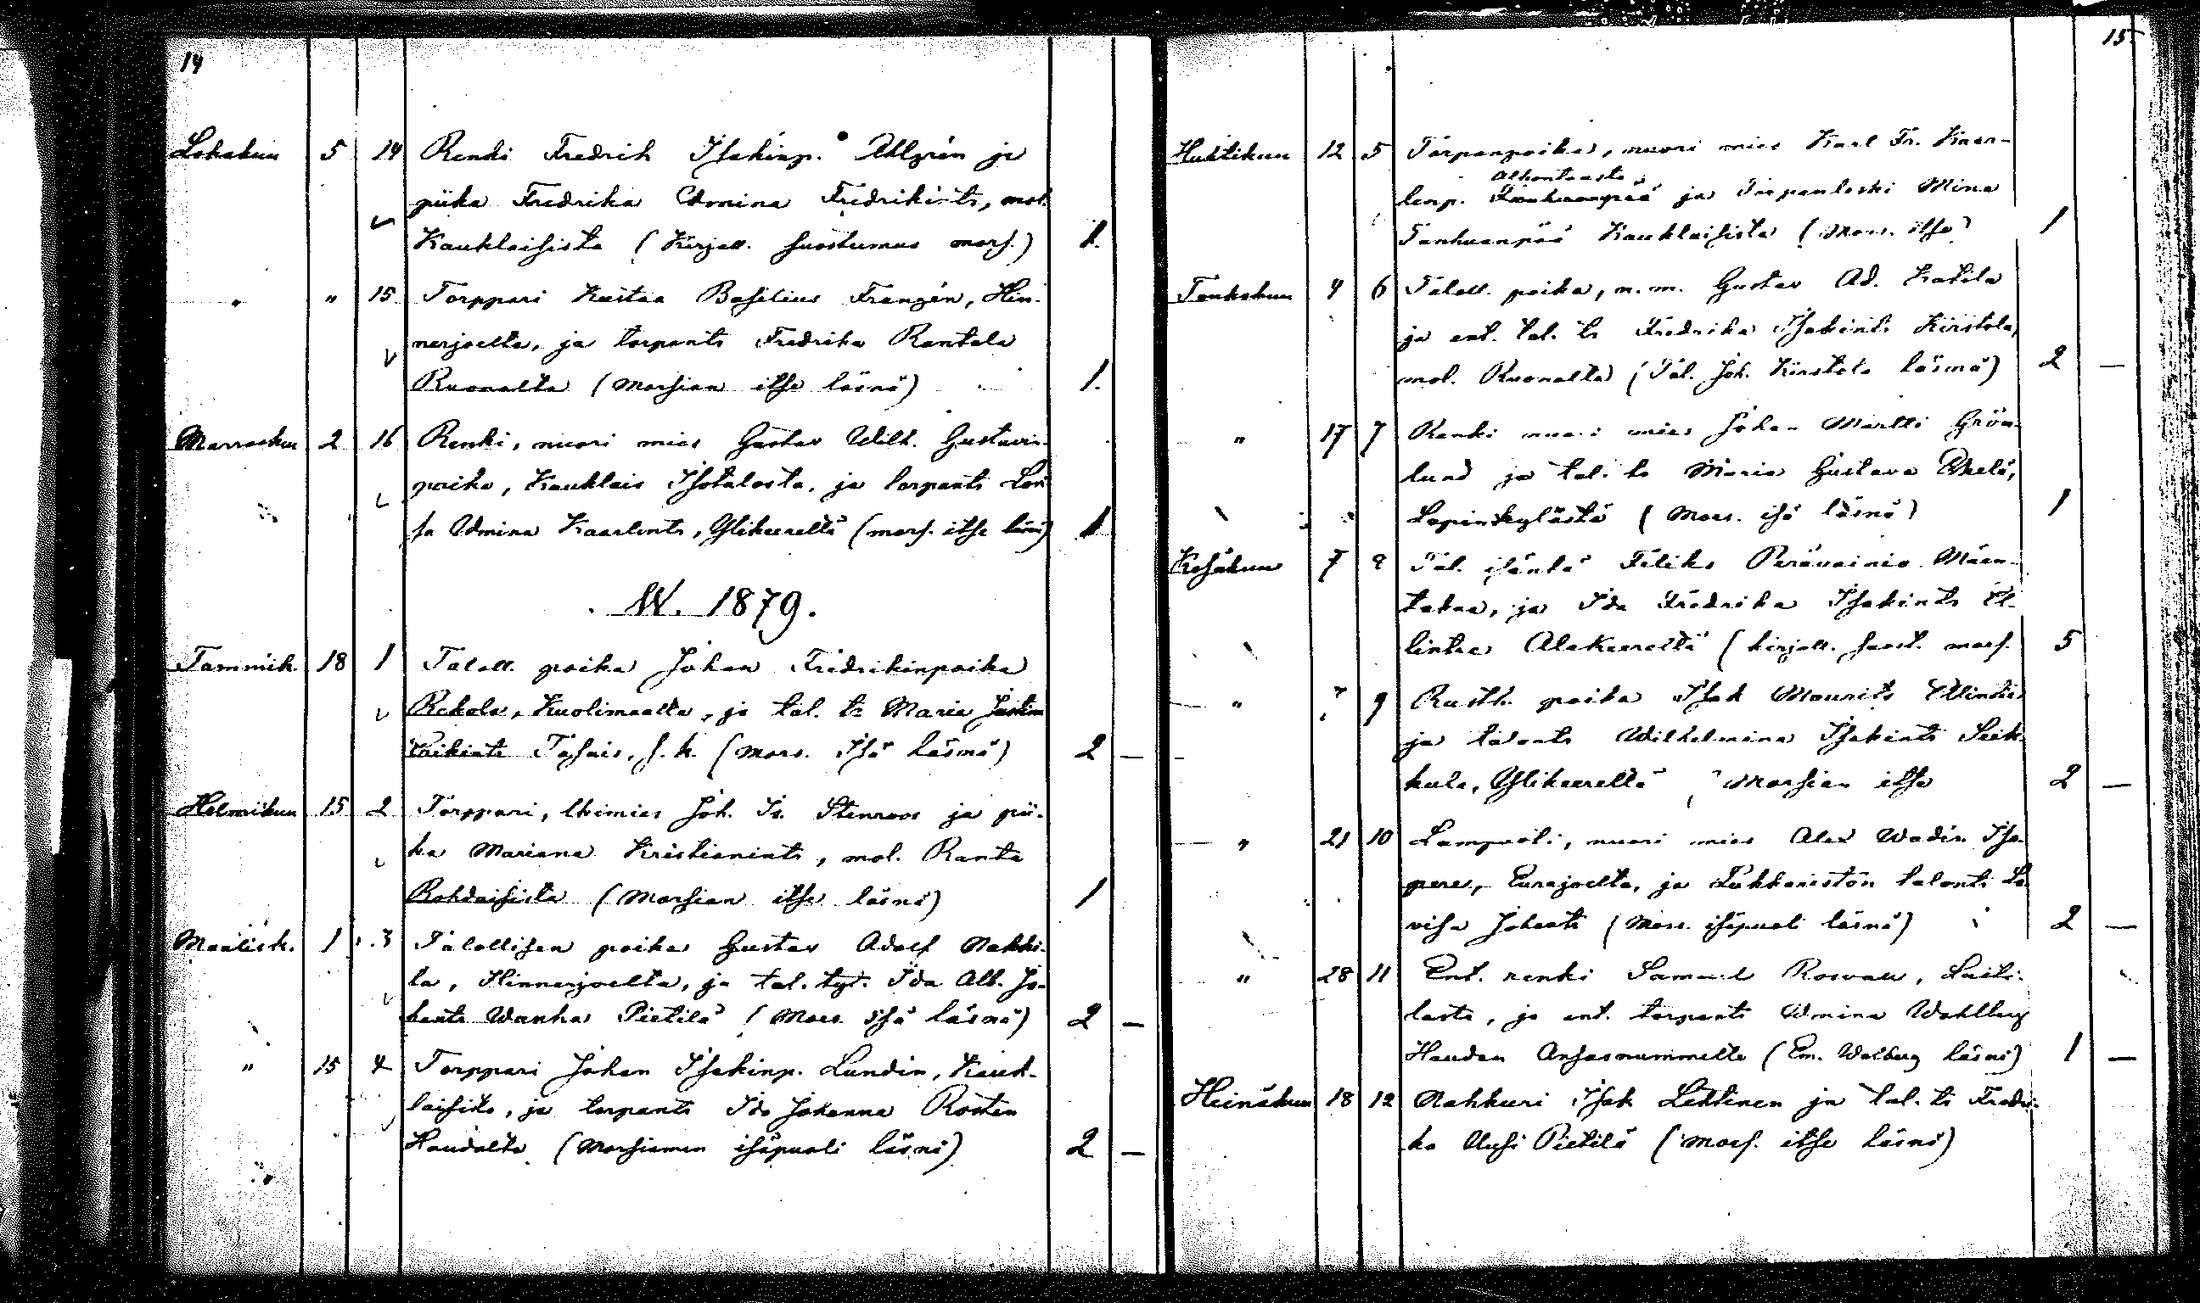 14
Lokakuu 5 14 Renki Fredrik Isakinp. Ahlgrén ja
piika Fredrika Edmina Fredrikints, mol.
Kauklaisista (Kirjall. suostumus mors.) 1.
" " 15. Torppari Kustaa Basilius Franzén, Hin-
nerjoelta, ja torpants Fredrika Rantala
Ruonalta (Morsian itse läsnä) 1.
Marraskuu 2 16 Renki, nuori mies Gustav Wilh. Gustavin-
poika, Kauklais Isotalosta, ja torpants Lovi-
sa Edmina Kaarlints, Ylikeereltä (mors. itse läsnä) 1
W. 1879.
Tammik. 18 1 Taloll. poika Johan Fredrikinpoika
Rekola, Kuolimaalta, ja tal. tr Maria Justina
Tafais, s. k. (Mors. Isä läsnä) 2 —
Helmikuu 15 2 Torppari, lkimies Joh. Is. Stenroos ja pii-
ka Mariana Kristianints, mol. Ranta
Rohdaisista (Morsian itse läsnä) 1
Maalisk. 1 3 Talollisen poika Gustav Adolf Nakki-
la, Hinnerjoelta, ja tal. tyt. Ida Alb. Jo-
hants Wanha Pietilä (Mors. isä läsnä) 2 —
" 15 4 Torppari Johan Isakinp. Lundin, Kauk-
laisista, ja torpants Ida Johanna Rosten
Haudalta (Morsiamen isäpuoli läsnä) 2 —
15.
Huhtikuu 12 5 Torpanpoika, nuori mies Karl Fr. Kaar-
lenp. Alhontaasta ja Torpanleski Mina
Tanhuanpää Kauklaisista (Mors. itse) 1
Toukokuu 4 6 Taloll. poika, n. m. Gustav Ad. Katila
ja ent. tal. tr Fredrika Isakints Kirstola,
mol. Ruonalta (Tal. Joh. Kirstola läsnä) 2 —
" 17 7 Renki nuori mies Johan Martti Grön-
lund ja tal. tr Maria Gustava
Lapinkylästä (Mors. isä läsnä) 1
Kesäkuu 7 8 Tal. isäntä Feliks Perävainio Mäen-
takaa, ja Ida Fredrika Isakints El-
lintra Alakeereltä (kirjall. suost. mors. 5
" 7 9 Rusth. poika Isak Maurits
ja talonts Wilhelmina Isakints Seik-
kula, Ylikeereltä, Morsian itse 2 —
" 21 10 Lampuoti, nuori mies Alex Wadin Iso-
pere, Eurajoelta, ja Pukkaniston talonts Lo-
visa Johants (Mors. isäpuoli läsnä) 2 —
" 28 11 Ent. renki Samuel Rosvall, Laiti-
lasta, ja ent. torpants Edmina Wahlberg
Haudan Ansasnummelta (Em. Walberg läsnä) 1 —
Heinäkuu 18 12 Nahkuri Isak Lehtinen ja tal. tr Fredri-
ka Uusi Pietilä (Mors. itse läsnä)